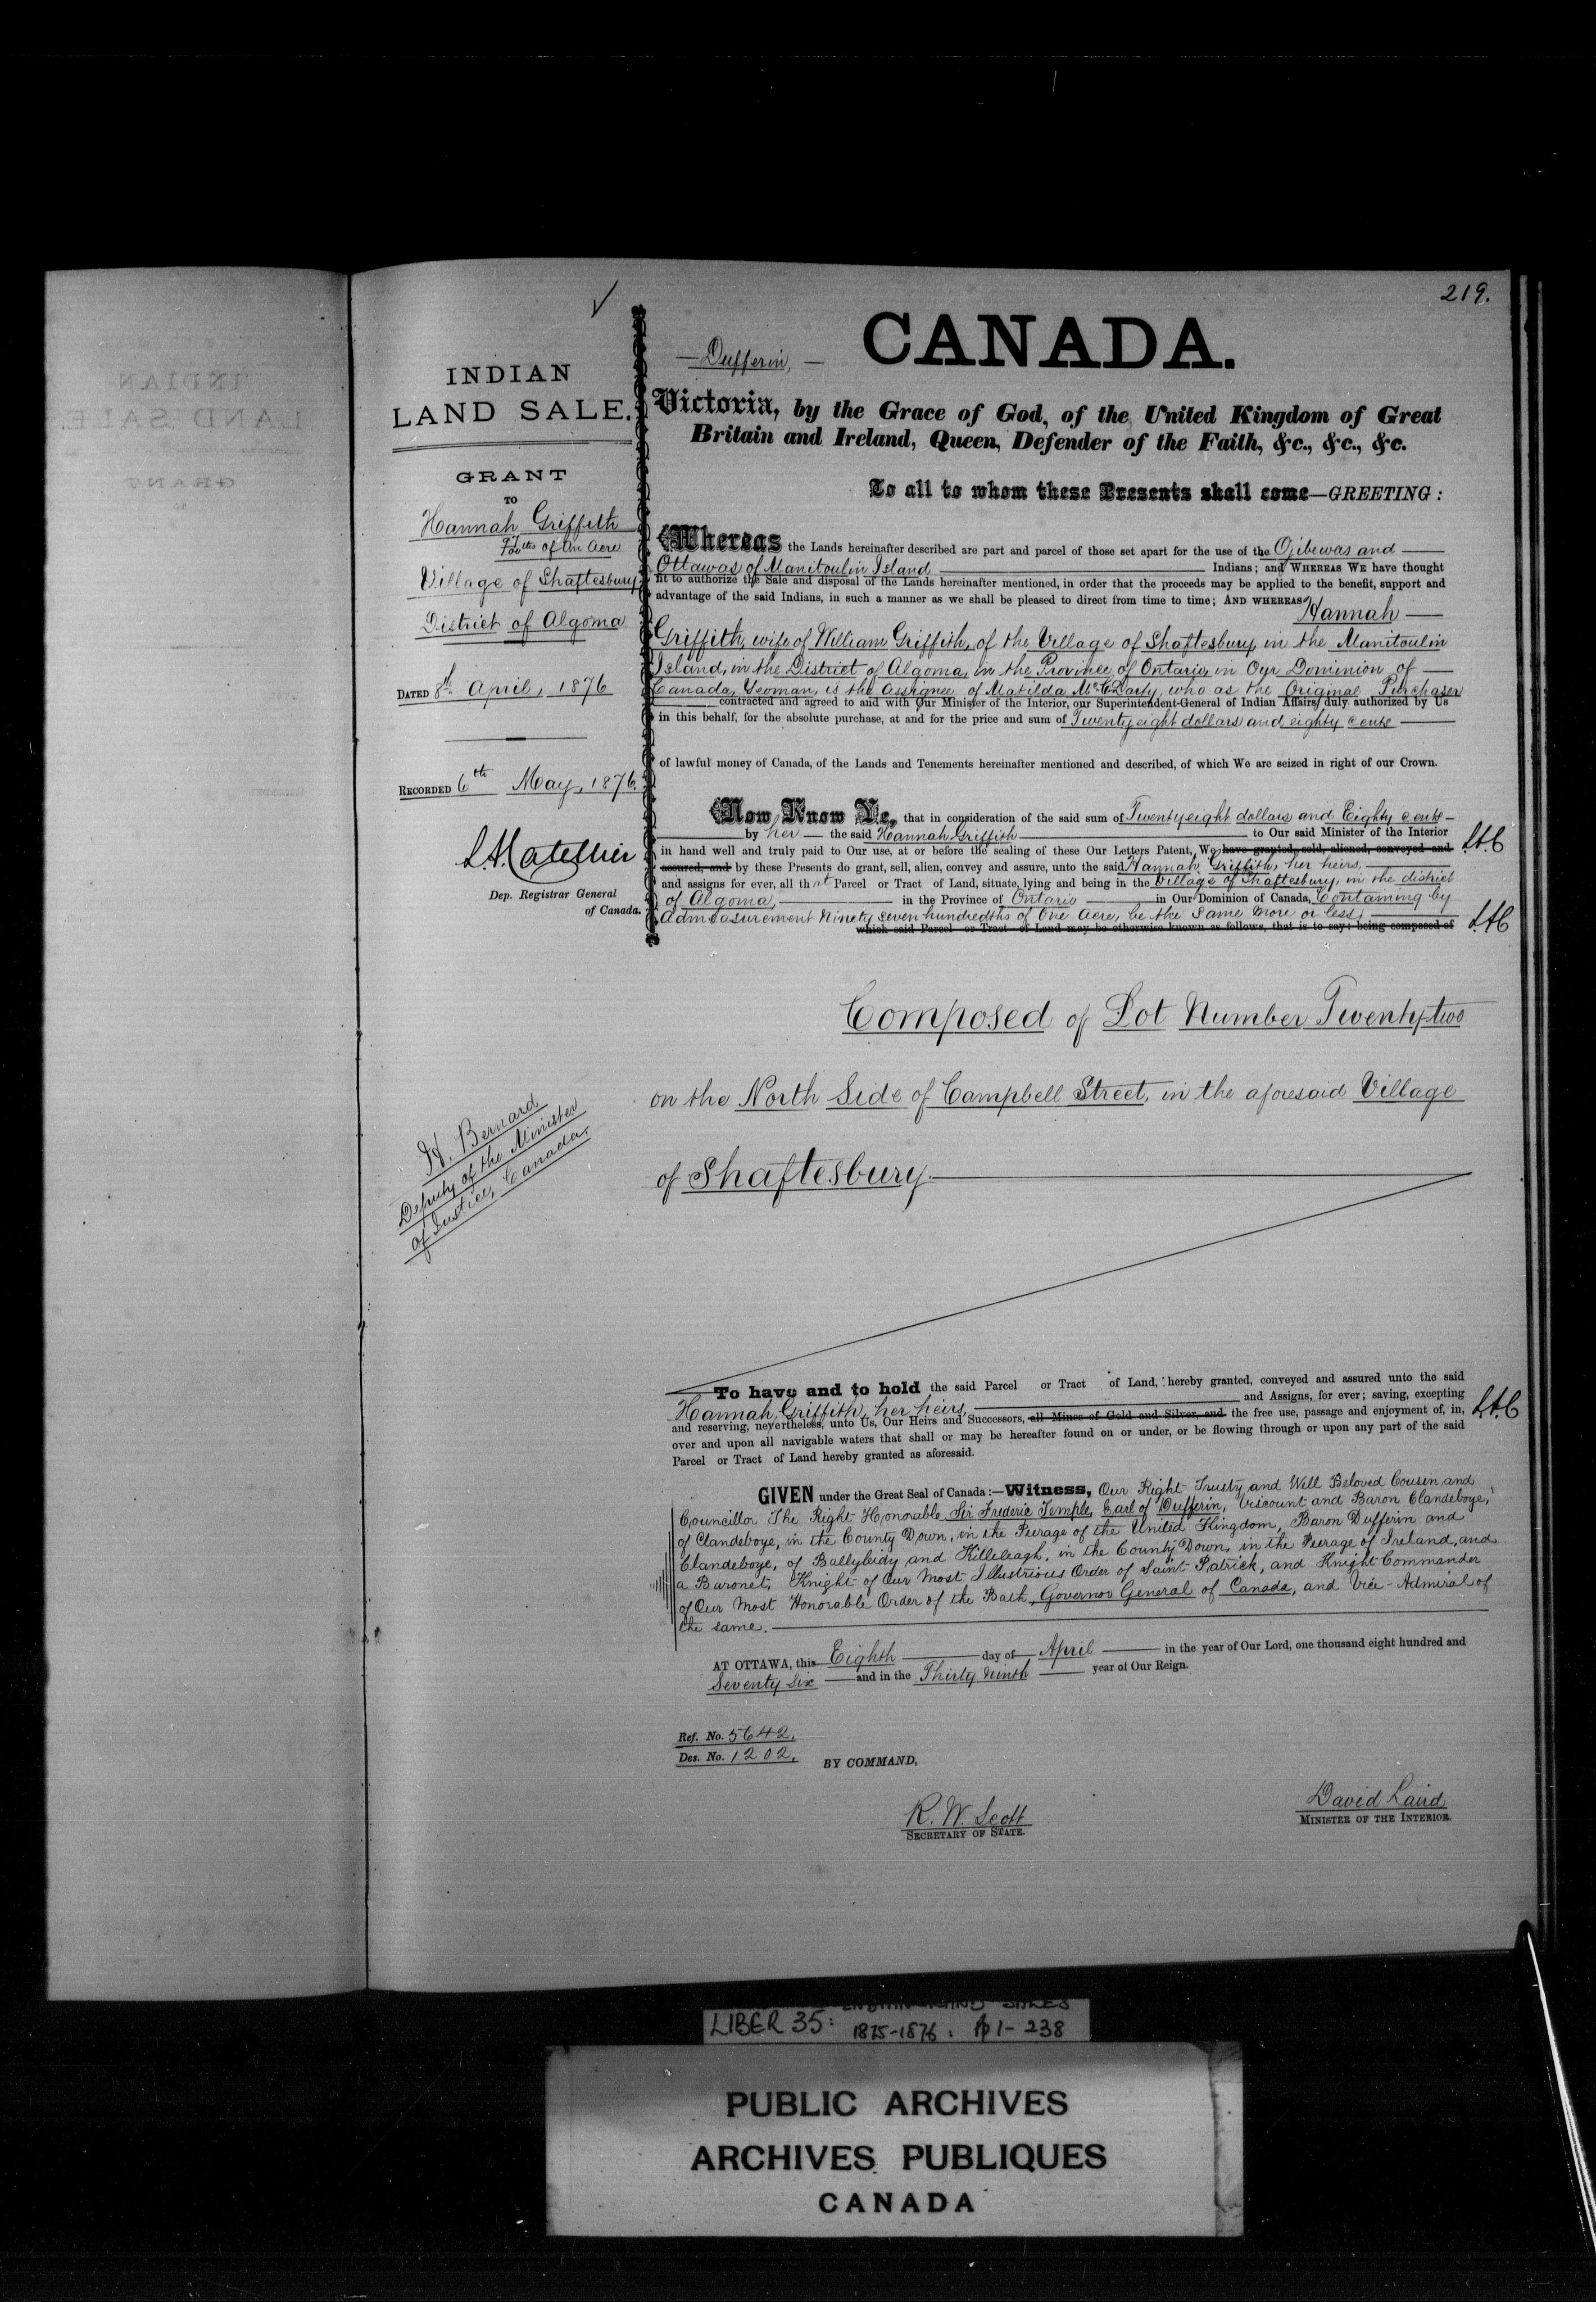 219.
INDIAN
LAND SALE.
GRANT
TO
Hannah Griffith
97/100ths of an Acre
Village of Shaftesbury
District of Algoma
DATED 8th April, 1876
RECORDED 6th May, 1876.
Dep. Registrar General
of Canada.
H. Bernard
Deputy of the Minister
of Justice, Canada.
—Dufferin,—
CANADA.
Victoria, by the Grace of God, of the United Kingdom of Great
Britain and Ireland, Queen, Defender of the Faith, &c., &c., &c.
To all to whom these Presents shall come—GREETING:
Whereas the Lands hereinafter described are part and parcel of those set apart for the use of the Ojibewas and
Ottawas of Manitoulin Island Indians; and WHEREAS WE have thought
fit to authorize the Sale and disposal of the Lands hereinafter mentioned, in order that the proceeds may be applied to the benefit, support and
advantage of the said Indians, in such a manner as we shall be pleased to direct from time to time; AND WHEREAS Hannah
Griffith, wife of William Griffith, of the Village of Shaftesbury, in the Manitoulin
Island, in the District of Algoma, in the Province of Ontario, in Our Dominion of
Canada, Yeoman, is the Assignee of Matilda who as the Original Purchaser
contracted and agreed to and with Our Minister of the Interior, our Superintendent-General of Indian Affairs, duly authorized by Us
in this behalf, for the absolute purchase, at and for the price and sum of Twenty eight dollars and eighty cents
of lawful money of Canada, of the Lands and Tenements hereinafter mentioned and described, of which We are seized in right of our Crown.
Now Know Ye, that in consideration of the said sum of Twenty eight dollars and Eighty cents
by her the said Hannah Griffith to Our said Minister of the Interior
in hand well and truly paid to Our use, at or before the sealing of these Our Letters Patent, We have granted, sold, aliened, conveyed and
assured, and by these Presents do grant, sell, alien, convey and assure, unto the said Hannah Griffith, her heirs,
and assigns for ever, all that Parcel or Tract of Land, situate, lying and being in the Village of Shaftesbury, in the district
of Algoma, in the Province of Ontario in Our Dominion of Canada, Containing by
Admeasurement Ninety seven hundredths of One Acre, be the same more or less,
which said Parcel or Tract of Land may be otherwise known as follows, that is to say: being composed of
Composed of Lot Number Twenty-two
on the North Side of Campbell Street, in the aforesaid Village
of Shaftesbury.
To have and to hold the said Parcel or Tract of Land, hereby granted, conveyed and assured unto the said
Hannah Griffith, her heirs, and Assigns, for ever; saving, excepting
and reserving, nevertheless, unto Us, Our Heirs and Successors, all Mines of Gold and Silver, and the free use, passage and enjoyment of, in,
over and upon all navigable waters that shall or may be hereafter found on or under, or be flowing through or upon any part of the said
Parcel or Tract of Land hereby granted as aforesaid.
GIVEN under the Great Seal of Canada:—Witness, Our Right Trusty and Well Beloved Cousin and
Councillor The Right Honorable Sir Frederic Temple, Earl of Dufferin, Viscount and Baron Clandeboye,
of Clandeboye, in the County Down, in the Peerage of the United Kingdom, Baron Dufferin and
Clandeboye, of Ballyleidy and Killeleagh, in the County Down, in the Peerage of Ireland, and
a Baronet, Knight of Our Most Illustrious Order of Saint Patrick, and Knight Commander
of Our Most Honorable Order of the Bath, Governor General of Canada, and Vice-Admiral of
the same.
AT OTTAWA, this Eighth day of April in the year of Our Lord, one thousand eight hundred and
Seventy Six and in the Thirty Ninth year of Our Reign.
Ref. No. 5642.
Des. No. 1202.
BY COMMAND,
R. W. Scott
SECRETARY OF STATE.
David Laird
MINISTER OF THE INTERIOR.
INDIAN LAND SALES
LIBER 35: 1875-1876: pp 1-238
PUBLIC ARCHIVES
ARCHIVES PUBLIQUES
CANADA